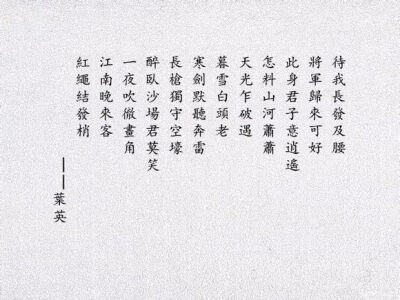 待我長發及腰
將軍歸來可好
此身君子意逍遙
怎料山河蕭蕭
天光乍破遇
暮雪白頭老
寒劍默聽奔雷
長槍獨守空壕
醉臥沙場君莫笑
一夜吹徹畫角
江南晚來客
紅繩結發梢
——葉英